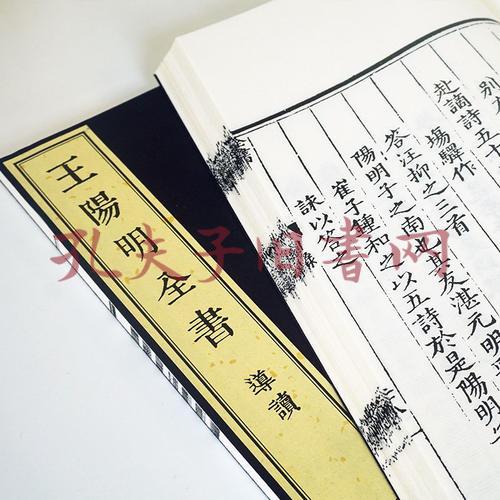 別
赴謫詩五十
塲驛作
答汪抑之三首
陽明子之南也其友湛元明
崔子鍾和之以五詩於是陽明
詠以答之
王陽明全書
導讀
孔夫子旧书网